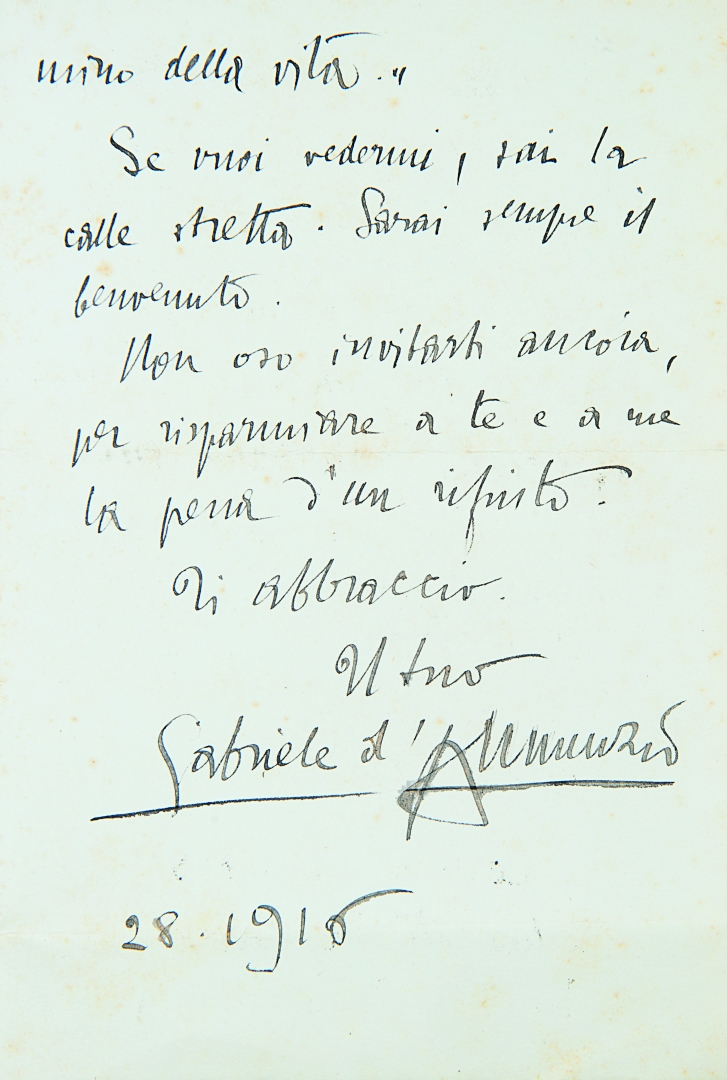 mino della vita."
Se vuoi vedermi, sai la
calle stretta. Sarai sempre il
benvenuto.
Non oso invitarti ancóra,
per risparmiare a te e a me
la pena d'un rifiuto.
Ti abbraccio.
Il tuo
Gabriele d'Annunzio
28.1916